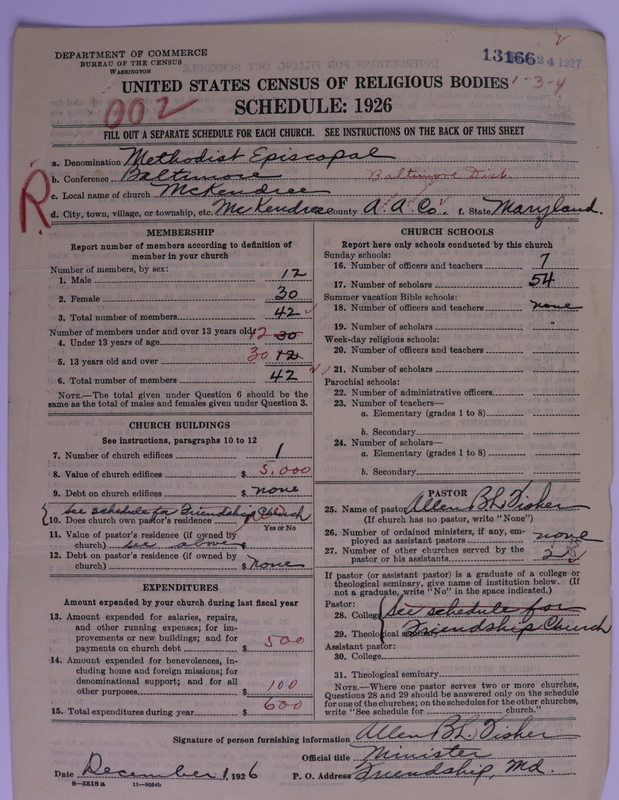 DEPARTMENT OF COMMERCE
BUREAU OF THE CENSUS
WASHINGTON
13166
24 1927
UNITED STATES CENSUS OF RELIGIOUS BODIES
1-3-4
SCHEDULE: 1926
002
FILL OUT A SEPARATE SCHEDULE FOR EACH CHURCH. SEE INSTRUCTIONS ON THE BACK OF THIS SHEET
R
a. Denomination Methodist Episcopal
b. Conference Baltimore Baltimore Dist.
c. Local name of church McKendree
d. City, town, village, or township, etc. McKendree County A. A. Co. f. State Maryland.
MEMBERSHIP
Report number of members according to definition of
member in your church
Number of members, by sex:
1. Male 12
2. Female 30
3. Total number of members 42
Number of members under and over 13 years old:
4. Under 13 years of age 12 30
5. 13 years old and over 30 12
6. Total number of members 42
NOTE.—The total given under Question 6 should be
same as the total of males and females given under Question 3.
CHURCH BUILDINGS
See instructions, paragraphs 10 to 12
7. Number of church edifices 1
8. Value of church edifices $ 5,000
9. Debt on church edifices $ none
See schedule for Friendship Church
10. Does church own pastor's residence
Yes or No
11. Value of pastor's residence (if owned by
church) see above $
12. Debt on pastor's residence (if owned by
church) $ none
EXPENDITURES
Amount expended by your church during last fiscal year
13. Amount expended for salaries, repairs,
and other running expenses; for im-
provements or new buildings; and for
payments on church debt $ 500
14. Amount expended for benevolences, in-
cluding home and foreign missions; for
denominational support; and for all
other purposes $ 100
15. Total expenditures during year $ 600
CHURCH SCHOOLS
Report here only schools conducted by this church
Sunday schools:
16. Number of officers and teachers 7
17. Number of scholars 54
Summer vacation Bible schools:
18. Number of officers and teachers none
19. Number of scholars "
Week-day religious schools:
20. Number of officers and teachers
21. Number of scholars
Parochial schools:
22. Number of administrative officers
23. Number of teachers—
a. Elementary (grades 1 to 8)
b. Secondary
24. Number of scholars—
a. Elementary (grades 1 to 8)
b. Secondary
PASTOR
25. Name of pastor Allen B. L. Fisher
(If church has no pastor, write "None")
26. Number of ordained ministers, if any, em-
ployed as assistant pastors none
27. Number of other churches served by the
pastor or his assistants
If pastor (or assistant pastor) is a graduate of a college or
theological seminary, give name of institution below. (If
not a graduate, write "No" in the space indicated.)
Pastor:
28. College See schedule for
29. Theological seminary Friendship Church
Assistant pastor:
30. College
31. Theological seminary
NOTE.—Where one pastor serves two or more churches,
Questions 28 and 29 should be answered only on the schedule
for one of the churches; on the schedules for the other churches,
write "See schedule for church."
Signature of person furnishing information Allen B. L. Fisher
Official title Minister
Date December 1, 1926 P. O. Address Friendship, Md.
8—5518 a 11—9084b